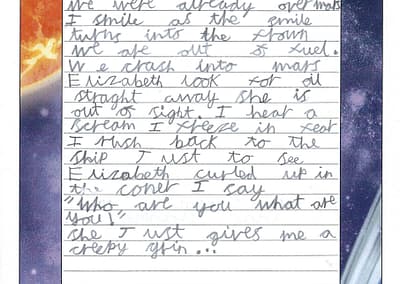 We were already over mars
I smile as the smile
turns into the frown
we are out of fuel.
We crash into mars
Elizabeth look for oil
straght away she is
out of sight. I hear a
scream I freeze in fear
I rush back to the
ship Just to see
Elizabeth curled up in
the coner I say
"Who are you what are
you!"
She Just gives me a
creepy grin...